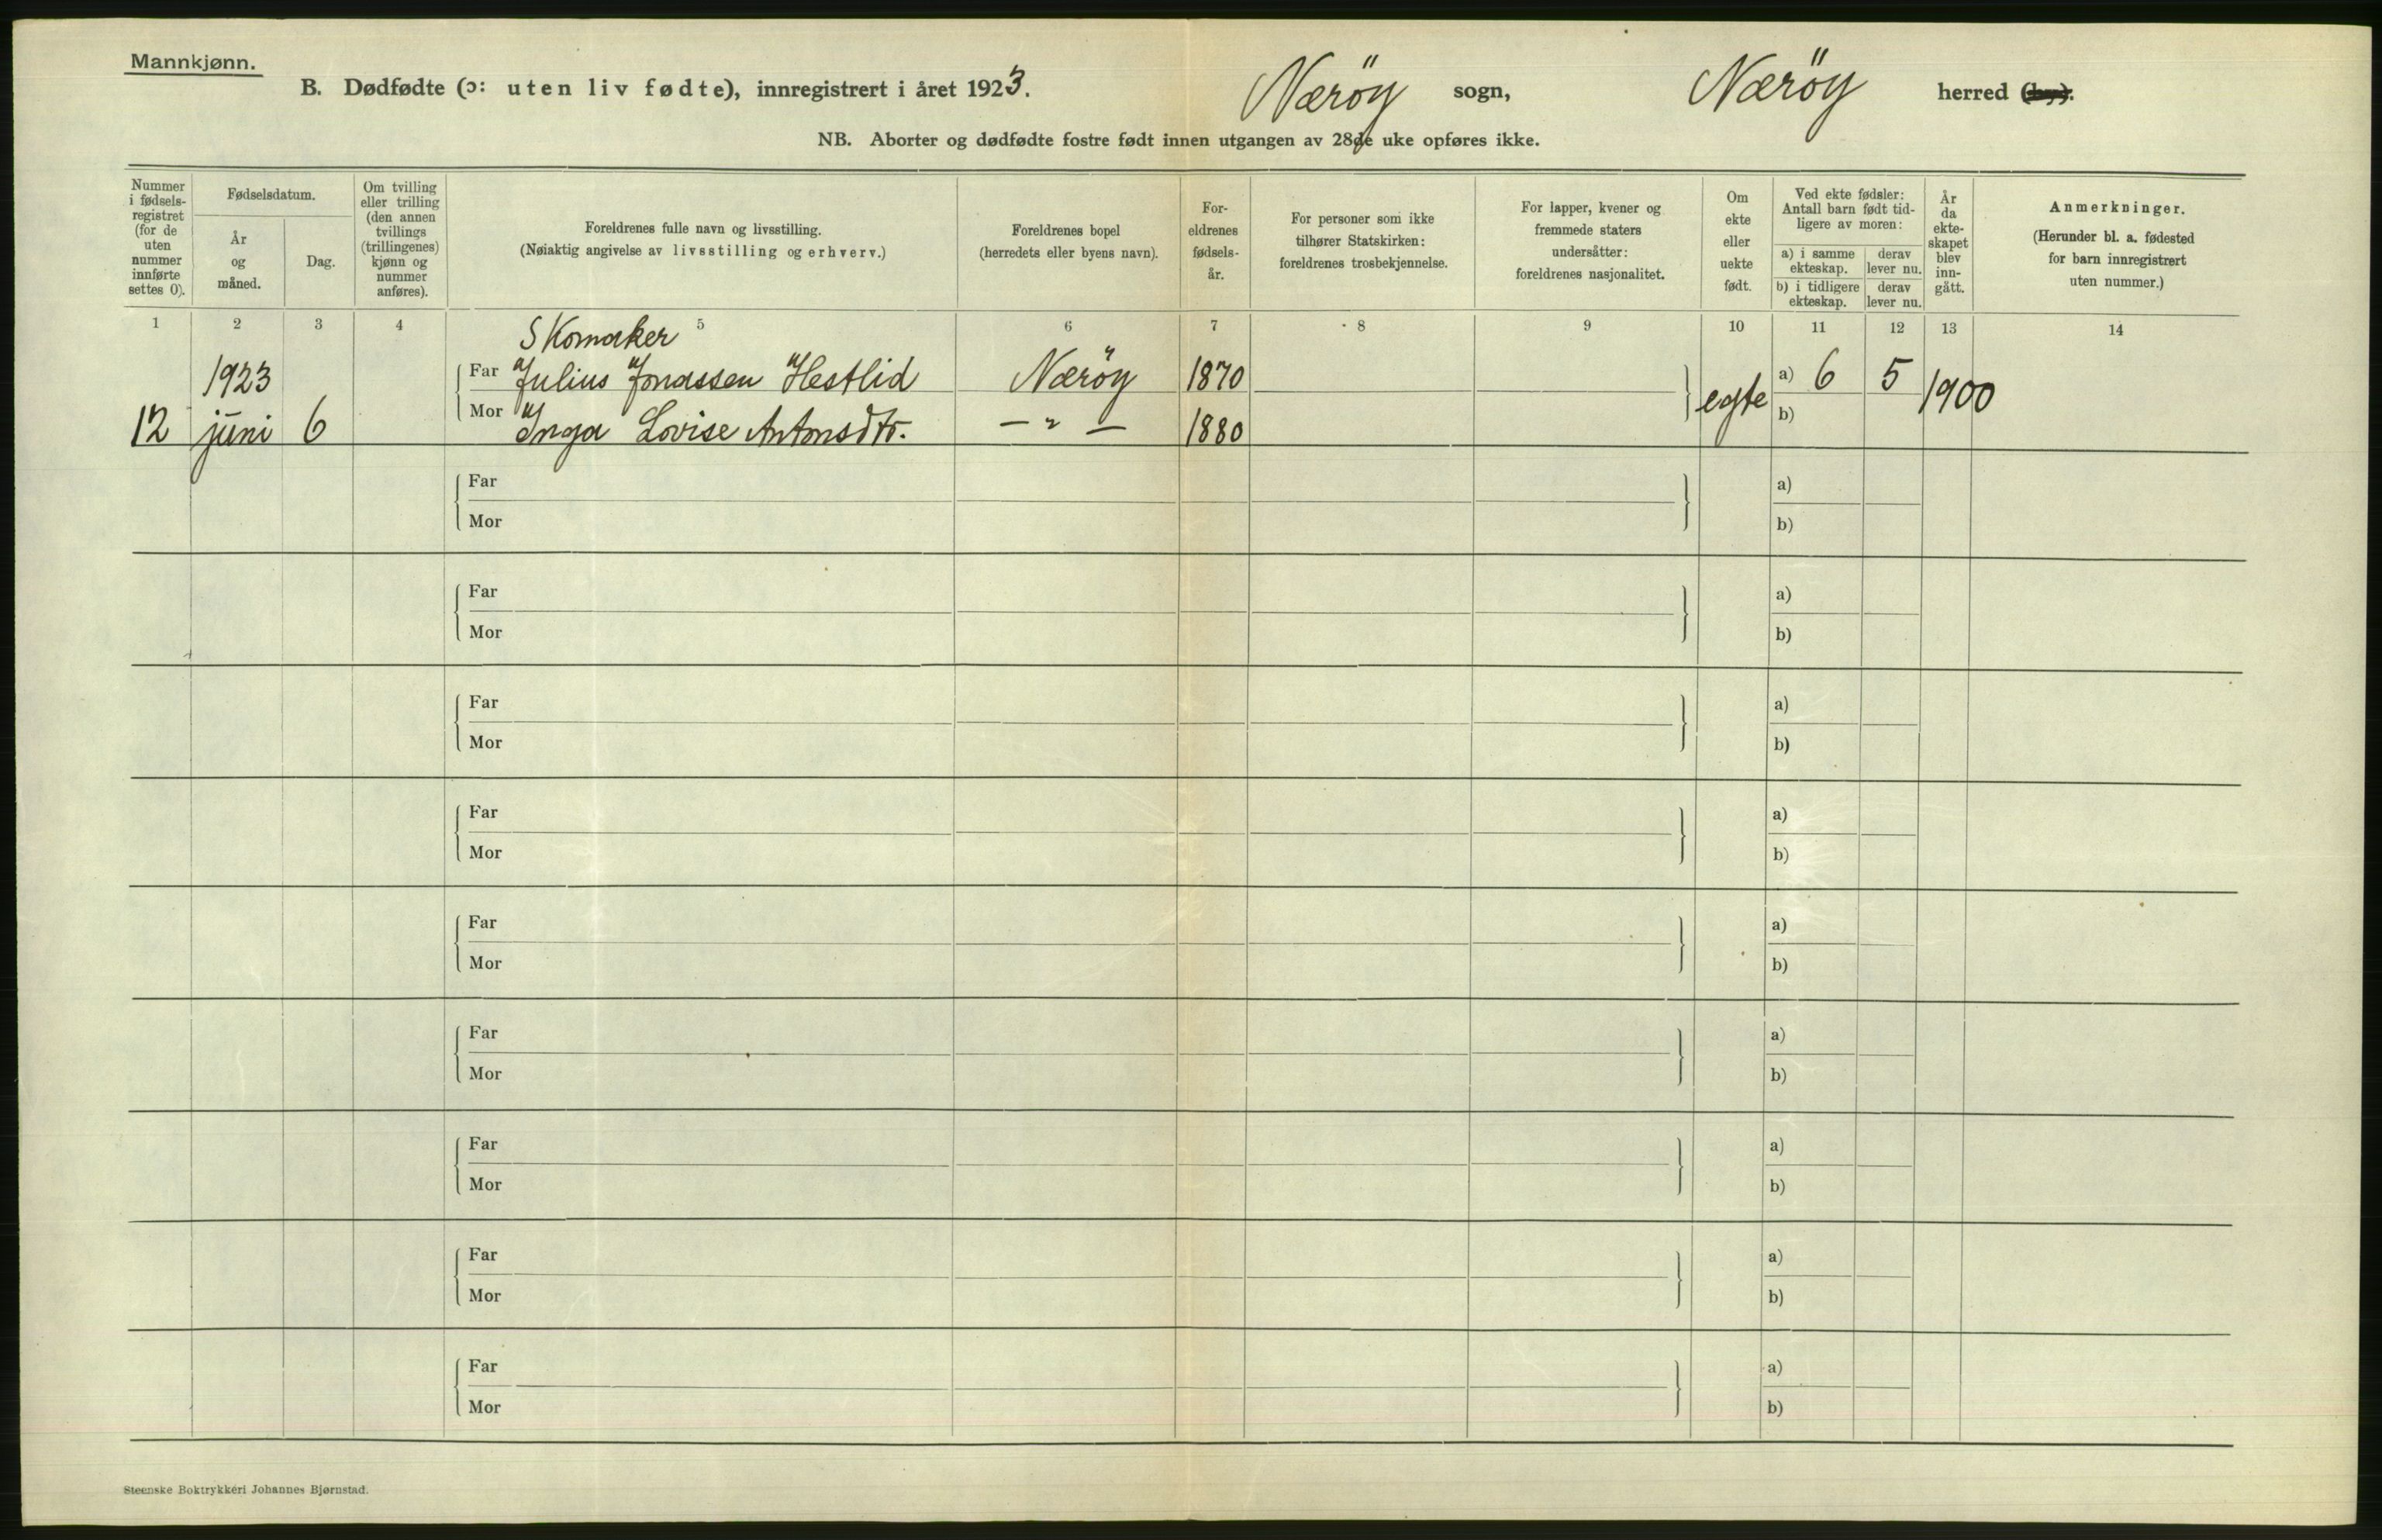 Mannkjønn.
B. Dødfødte (ɔ: uten liv fødte), innregistrert i året 1923. Næröy sogn, Næröy herred
NB. Aborter og dødfødte fostre født innen utgangen av 28de uke opføres ikke.
Nummer i fødsels-registret (for de uten nummer innførte settes 0).
Fødselsdatum.
År og måned.
Dag.
Om tvilling eller trilling (den annen tvillings (trillingenes) kjønn og nummer anføres).
Foreldrenes fulle navn og livsstilling.
(Nøiaktig angivelse av livsstilling og erhverv.)
Foreldrenes bopel
(herredets eller byens navn).
For-eldrenes fødsels-år.
For personer som ikke tilhører Statskirken: foreldrenes trosbekjennelse.
For lapper, kvener og fremmede staters undersåtter: foreldrenes nasjonalitet.
Om ekte eller uekte født.
Ved ekte fødsler: Antall barn født tid-ligere av moren:
a) i samme ekteskap. derav lever nu.
b) i tidligere ekteskap. derav lever nu.
År da ekte-skapet blev inn-gått.
Anmerkninger.
(Herunder bl. a. fødested for barn innregistrert uten nummer.)
1 2 3 4 5 6 7 8 9 10 11 12 13 14
Skomaker
1923 Far Julius Jonassen Hestlid Næröy 1870 a) 6 5
12 juni 6 Mor Inga Lovise Antonsdtr. — " — 1880 egte b) 1900
Far a)
Mor b)
Far a)
Mor b)
Far a)
Mor b)
Far a)
Mor b)
Far a)
Mor b)
Far a)
Mor b)
Far a)
Mor b)
Far a)
Mor b)
Far a)
Mor b)
Steenske Boktrykkeri Johannes Bjørnstad.